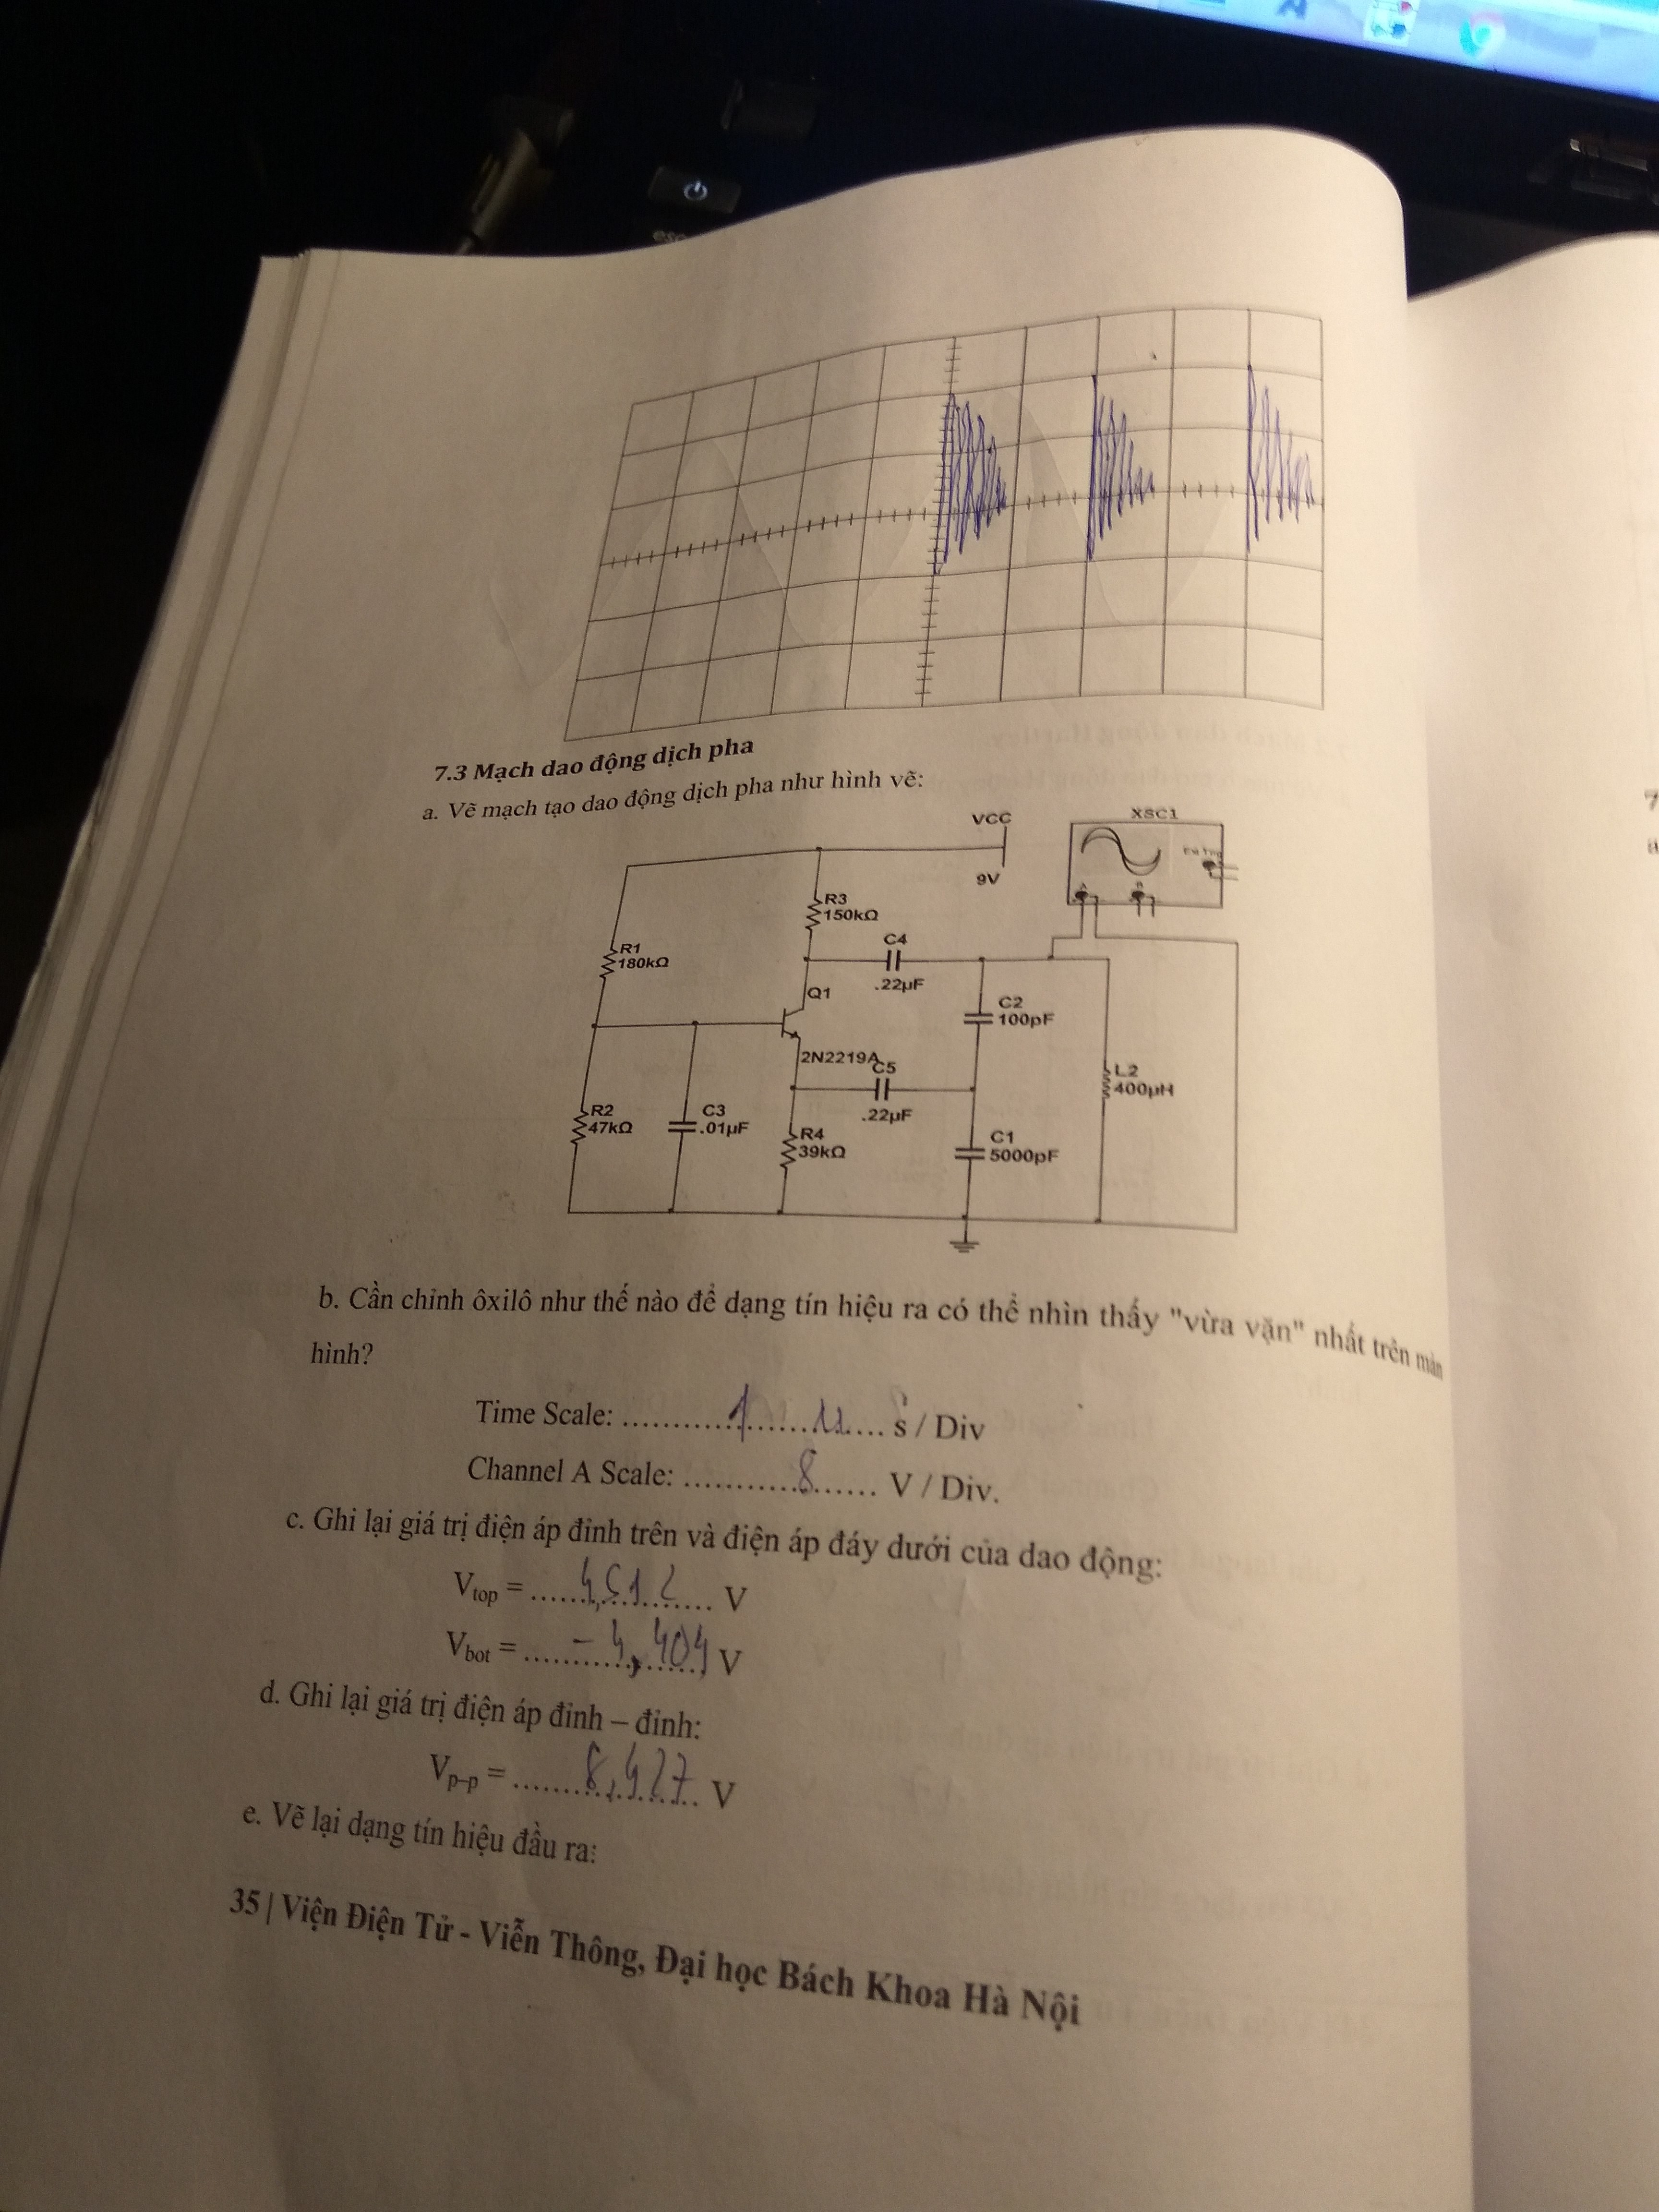 esc
7.3 Mạch dao động dịch pha
a. Vẽ mạch tạo dao động dịch pha như hình vẽ:
VCC
9V
XSC1
R3
150kΩ
R1
180kΩ
C4
.22µF
Q1
C2
100pF
2N2219A
C5
.22µF
L2
400µH
R2
47kΩ
C3
.01µF
R4
39kΩ
C1
5000pF
b. Cần chỉnh ôxilô như thế nào để dạng tín hiệu ra có thể nhìn thấy "vừa vặn" nhất trên màn
hình?
Time Scale: ........1........µ.... s / Div
Channel A Scale: ............8...... V / Div.
c. Ghi lại giá trị điện áp đỉnh trên và điện áp đáy dưới của dao động:
Vtop = ......4,512...... V
Vbot = ......-4,404...... V
d. Ghi lại giá trị điện áp đỉnh – đỉnh:
Vp-p = ......8,427...... V
e. Vẽ lại dạng tín hiệu đầu ra:
35 | Viện Điện Tử - Viễn Thông, Đại học Bách Khoa Hà Nội